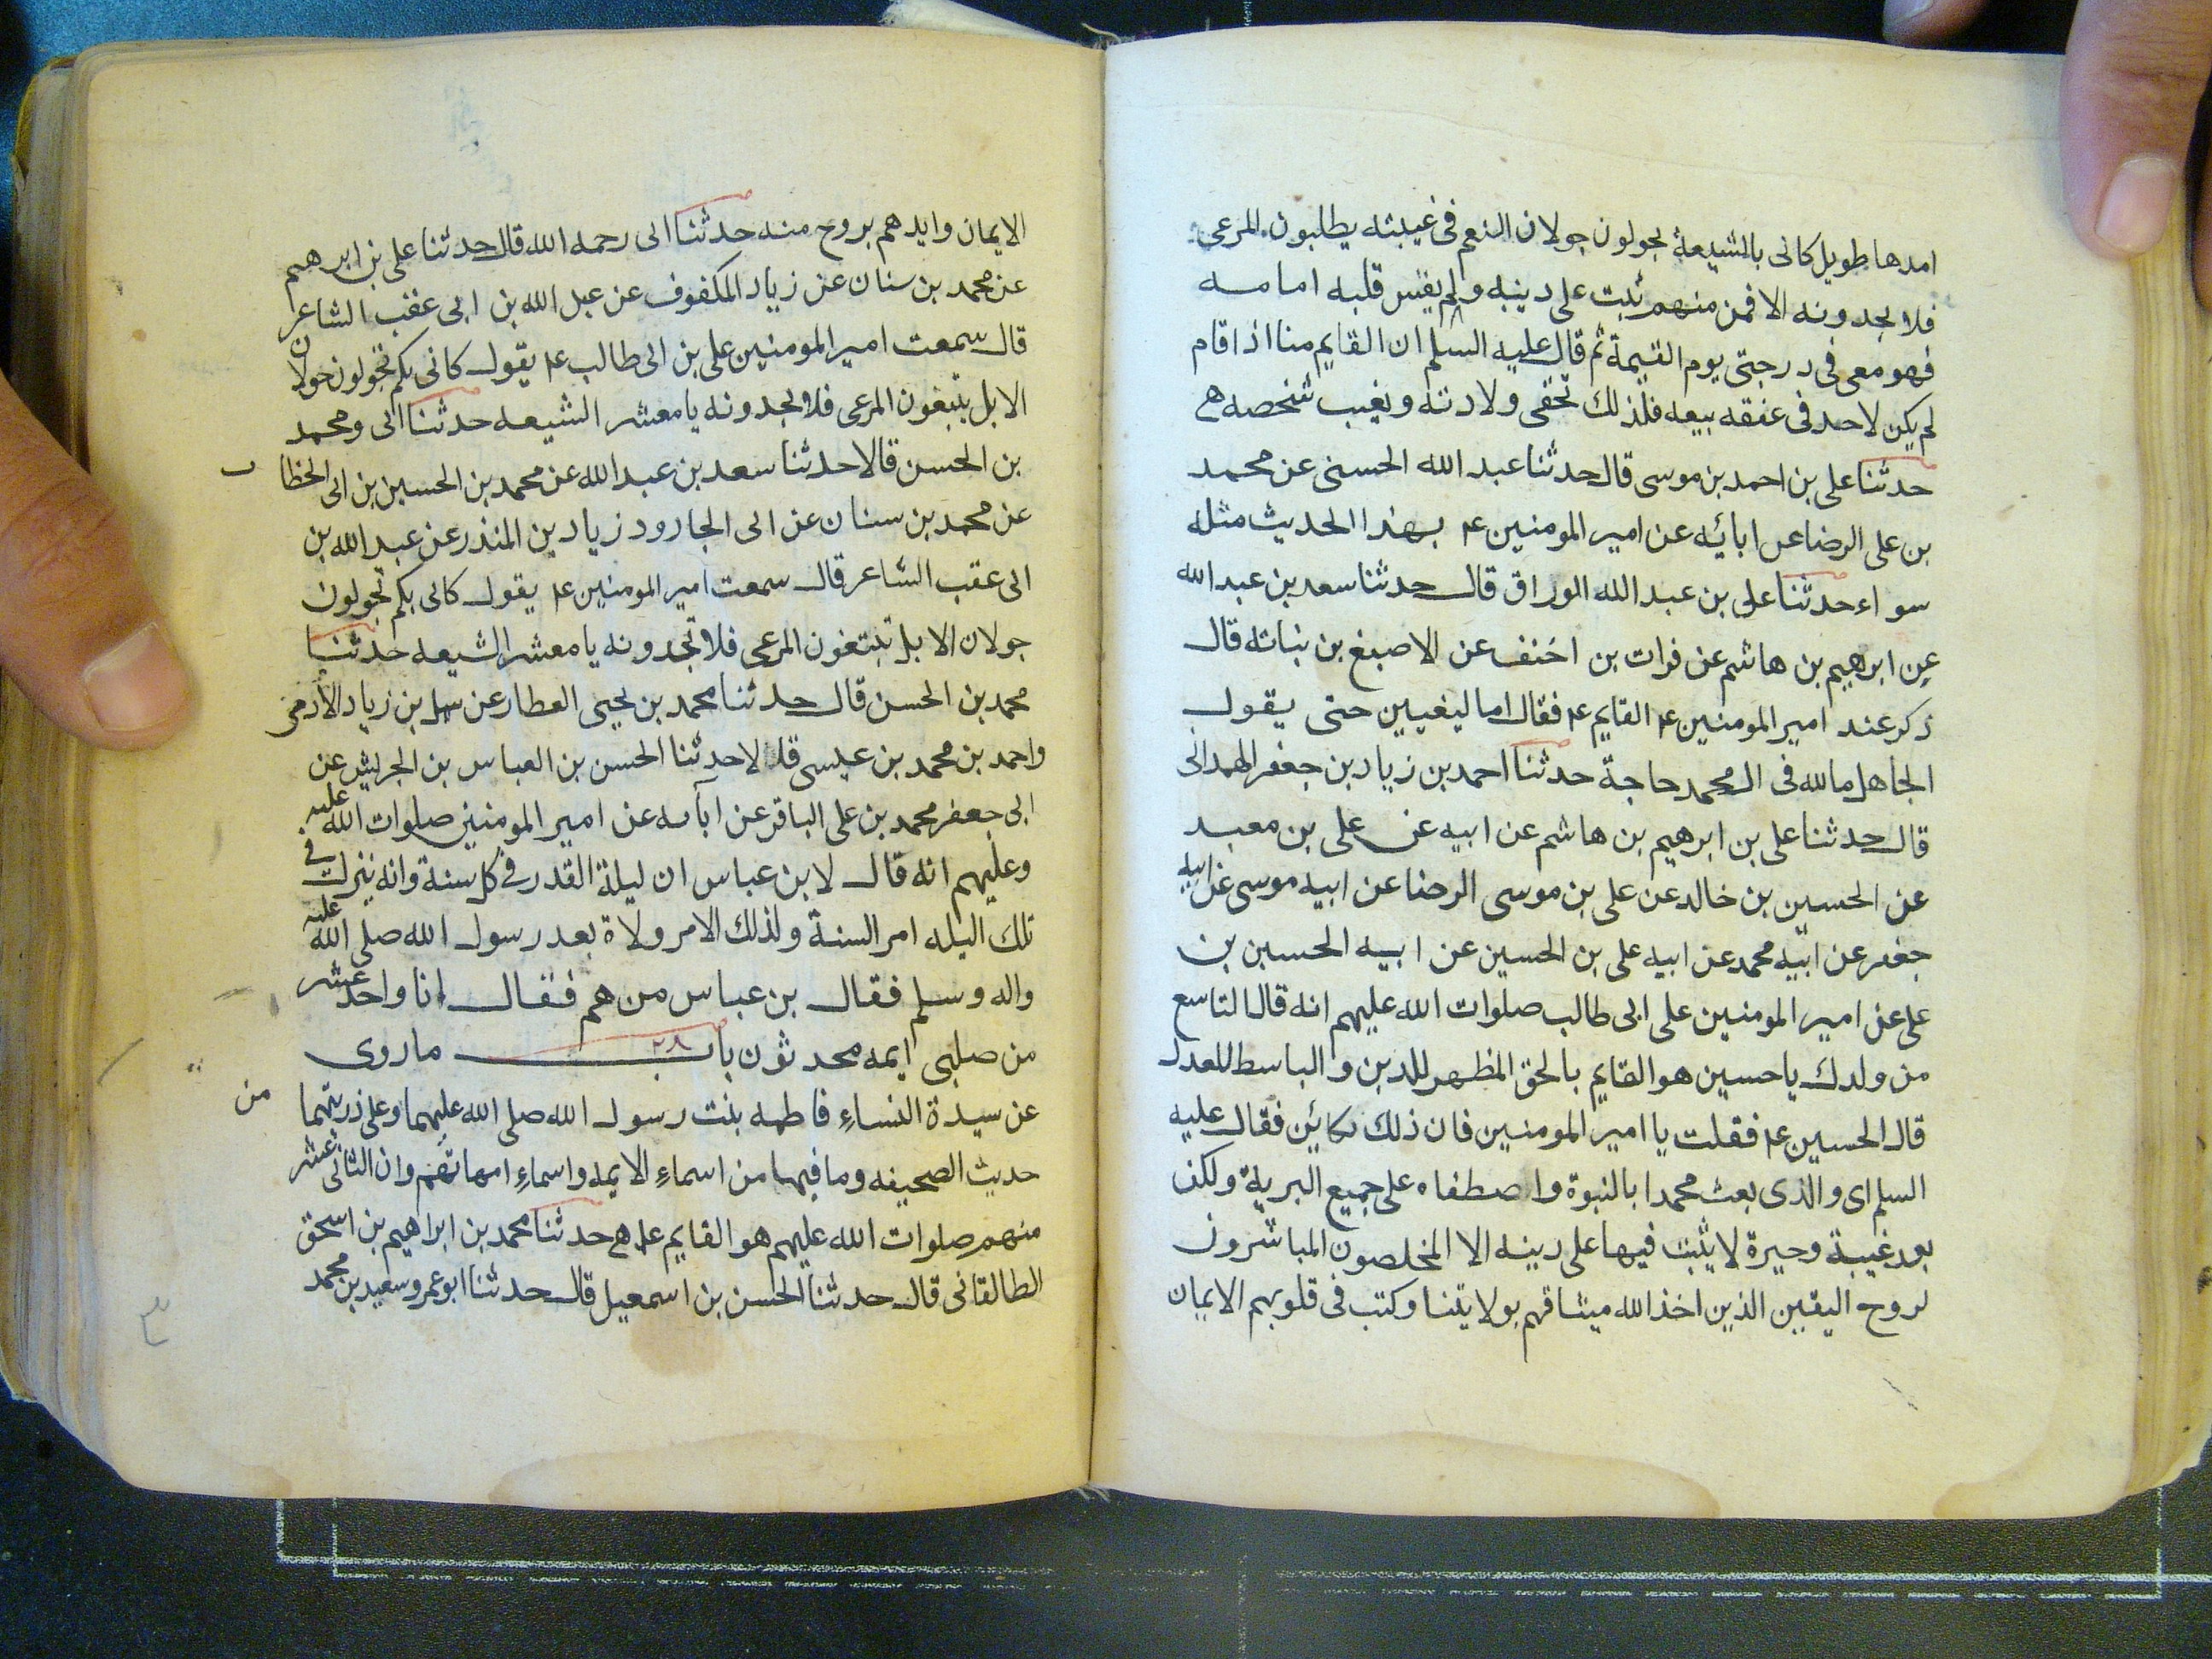 امدها طويل كانى بالشيعة يجولون جولان النعم فى غيبته يطلبون المرعى
فلا يجدونه الا فمن منهم ثبت على دينه ولم يقس قلبه امامه
فهو معى فى درجتى يوم القيمة ثم قال عليه السلم ان القايم منا اذا قام
لم يكن لاحد فى عنقه بيعه فلذلك تخفى ولادته ويغيب شخصه هم
حدثنا على بن احمد بن موسى قال حدثنا عبد الله الحسنى عن محمد
بن على الرضا عن ابائه عن امير المومنين ع بهذا الحديث مثله
سواء حدثنا على بن عبد الله الوراق قال حدثنا سعد بن عبد الله
عن ابرهيم بن هاشم عن فرات بن احنف عن الاصبغ بن نباته قال
ذكر عند امير المومنين ع القايم ع فقال اما ليغيبن حتى يقول
الجاهل ما لله فى ال محمد حاجة حدثنا احمد بن زياد بن جعفر الهمدانى
قال حدثنا على بن ابرهيم بن هاشم عن ابيه عن على بن معبد
عن الحسين بن خالد عن على بن موسى الرضا عن ابيه موسى عن ابيه
جعفر عن ابيه محمد عن ابيه على بن الحسين عن ابيه الحسين بن
على عن امير المومنين على ابى طالب صلوات الله عليهم انه قال التاسع
من ولدك ياحسين هو القايم بالحق المظهر للدين والباسط للعدل
قال الحسين ع فقلت يا امير المومنين فان ذلك لكائن فقال عليه
السلم اى والذى بعث محمدا بالنبوة واصطفاه على جميع البرية ولكن
بعد غيبة وحيرة لا يثبت فيها على دينه الا المخلصون المباشرون
لروح اليقين الذين اخذ الله ميثاقهم بولايتنا وكتب فى قلوبهم الايمان
الايمان وايدهم بروح منه حدثنا ابى رحمه الله قال حدثنا على بن ابرهيم
عن محمد بن سنان عن زياد المكفوف عن عبد الله بن ابى عقب الشاعر
قال سمعت امير المومنين على بن ابى طالب ع يقول كانى بكم تجولون جولان
الابل تبتغون المرعى فلا تجدونه يا معشر الشيعه حدثنا ابى ومحمد
بن الحسن قالا حدثنا سعد بن عبد الله عن محمد بن الحسين بن ابى الخطاب
عن محمد بن سنان عن ابى الجارود زياد بن المنذر عن عبد الله بن
ابى عقب الشاعر قال سمعت امير المومنين ع يقول كانى بكم تجولون
جولان الابل تبتغون المرعى فلا تجدونه يا معشر الشيعه حدثنا
محمد بن الحسن قال حدثنا محمد بن يحيى العطار عن سهل بن زياد الادمى
واحمد بن محمد بن عيسى قالا حدثنا الحسن بن العباس بن الجريش عن
ابى جعفر محمد بن على الباقر عن آبائه عن امير المومنين صلوات الله عليه
وعليهم انه قال لابن عباس ان ليلة القدر فى كل سنة وانه ينزل فى
تلك اليله امر السنة ولذلك الامر ولاة بعد رسول الله صلى الله عليه
واله وسلم فقال بن عباس من هم فقال انا واحد عشر
من صلبى ايمه محدثون باب ٢٨ ما روى
عن سيدة النساء فاطمه بنت رسول الله صلى الله عليهما وعلى ذريتهما من
حديث الصحيفه وما فيها من اسماء الايمه واسماء امهاتهم وان الثانى عشر
منهم صلوات الله عليهم هو القايم ع هم حدثنا محمد بن ابراهيم بن اسحق
الطالقانى قال حدثنا الحسن بن اسمعيل قال حدثنا ابو عمرو سعيد بن محمد